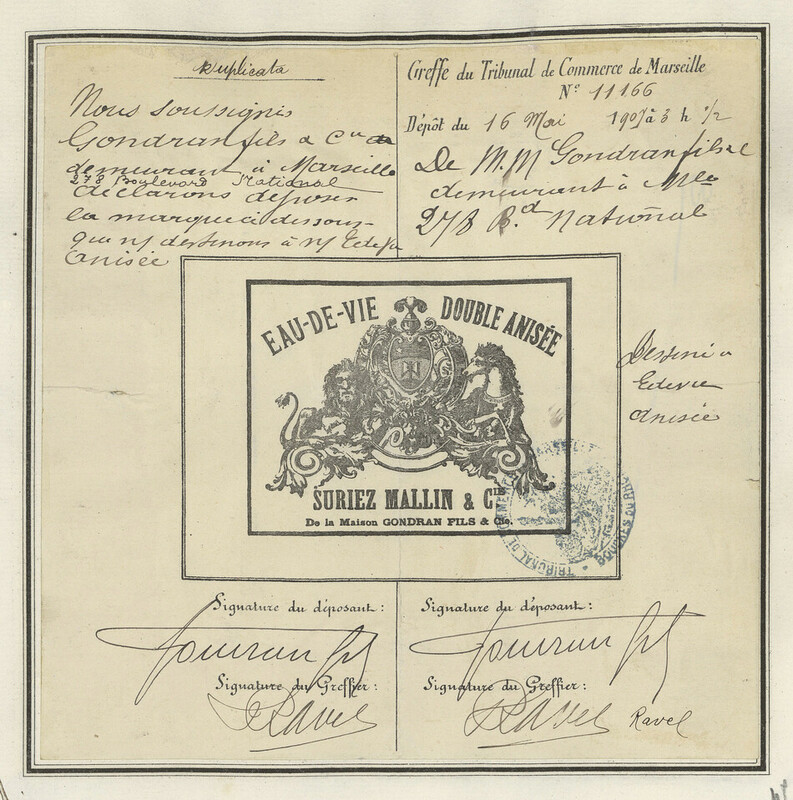 Duplicata
Nous soussignés
Gondran fils & Cie
demeurant à Marseille
278 Boulevard National
déclarons déposer
la marque ci dessous
que n/ destinons à n/ Edevie
Anisée
Greffe du Tribunal de Commerce de Marseille
N° 11166
Dépôt du 16 Mai 1907 à 3 h 1/2
De M.M Gondran fils &c
demeurant à Mlle
278 Bd National
EAU-DE-VIE DOUBLE ANISÉE
SURIEZ MALLIN & CIE
De la Maison GONDRAN FILS & Cie.
Edevie
anisée
TRIBUNAL DE COMMERCE
Signature du déposant:
Gondran fils
Signature du Greffier:
Ravel
Signature du déposant:
Gondran fils
Signature du Greffier:
Ravel Ravel